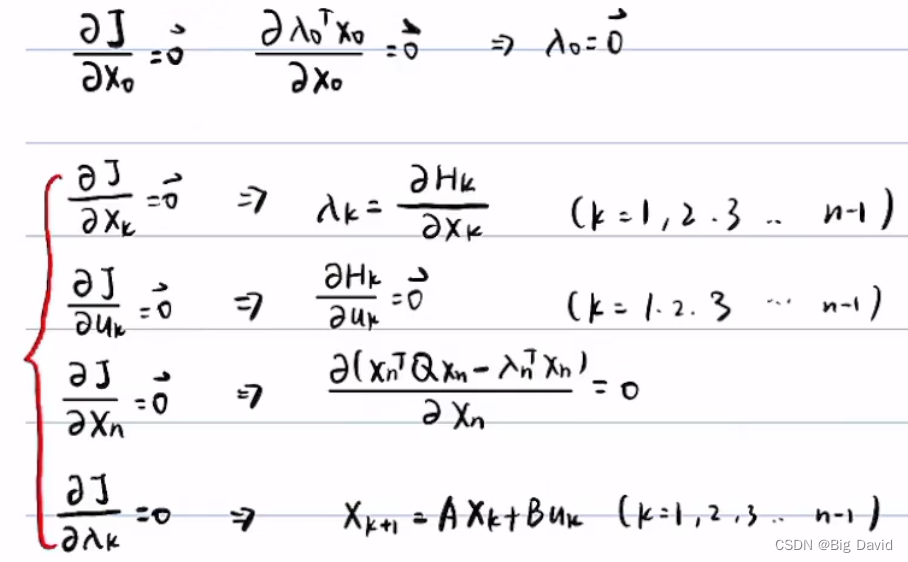 ∂J/∂x₀ = 0⃗   ∂λ₀ᵀx₀/∂x₀ = 0⃗   ⇒ λ₀ = 0⃗
∂J/∂xₖ = 0⃗   ⇒   λₖ = ∂Hₖ/∂xₖ   (k = 1, 2 . 3 .. n-1)
∂J/∂uₖ = 0⃗   ⇒   ∂Hₖ/∂uₖ = 0⃗   (k = 1. 2. 3 ... n-1)
∂J/∂xₙ = 0⃗   ⇒   ∂(xₙᵀQxₙ - λₙᵀxₙ)/∂xₙ = 0
∂J/∂λₖ = 0   ⇒   xₖ₊₁ = Axₖ + Buₖ   (k = 1, 2, 3 .. n-1)
CSDN @Big David